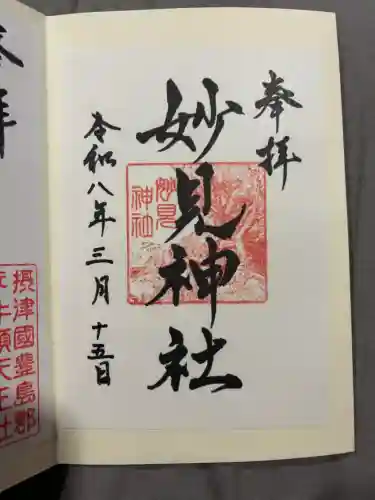 奉拝
妙見神社
妙見
神社
令和八年三月十五日
拝
摂津國豊島郡
牛頭天王社